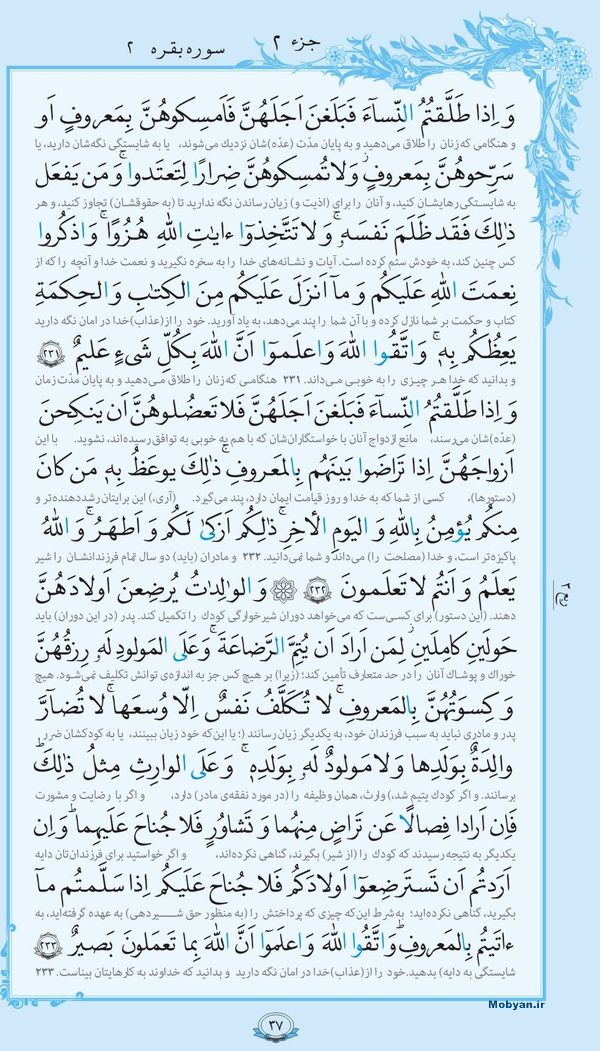 جزء ۲
سوره بقره ۲
وَ اِذا طَلَّقتُمُ النِّساۤءَ فَبَلَغنَ اَجَلَهُنَّ فَاَمسِكوهُنَّ بِمَعروفٍ اَو
و هنگامی که زنان را طلاق می‌دهید و به پایان مدّت (عدّه)شان نزدیك می‌شوند، یا به شایستگی نگه‌شان دارید، یا
سَرِّحوهُنَّ بِمَعروفٍ ۚ وَلا تُمسِكوهُنَّ ضِرارًا لِتَعتَدوا ۚ وَ مَن يَفعَل
به شایستگی رهایشان کنید، و آنان را برای (اذیت و) زیان رساندن نگه ندارید تا (به حقوقشان) تجاوز کنید، و هر
ذٰلِكَ فَقَد ظَلَمَ نَفسَهُ ۚ وَ لا تَتَّخِذوا ءايٰتِ اللّٰهِ هُزُوًا ۚ وَ اذكُروا
کس چنین کند، به خودش ستم کرده است. آیات و نشانه‌های خدا را به سخره نگیرید و نعمت خدا و آنچه را که از
نِعمَتَ اللّٰهِ عَلَيكُم وَ ماۤ اَنزَلَ عَلَيكُم مِنَ الكِتٰبِ وَ الحِكمَةِ
کتاب و حکمت بر شما نازل کرده و با آن شما را پند می‌دهد، به یاد آورید. خود را از(عذاب)خدا در امان نگه دارید
يَعِظُكُم بِهِ ۚ وَ اتَّقُوا اللّٰهَ وَ اعلَموا اَنَّ اللّٰهَ بِكُلِّ شَیءٍ عَليمٌ ۲۳۱
و بدانید که خدا هر چیزی را به خوبی می‌داند. ۲۳۱ هنگامی که زنان را طلاق می‌دهید و به پایان مدّت زمان
وَ اِذا طَلَّقتُمُ النِّساۤءَ فَبَلَغنَ اَجَلَهُنَّ فَلا تَعضُلوهُنَّ اَن يَنكِحنَ
(عدّه)شان می‌رسند، مانع ازدواج آنان با خواستگاران‌شان که با هم به خوبی به توافق رسیده‌اند، نشوید. با این
اَزواجَهُنَّ اِذا تَراضَوا بَينَهُم بِالمَعروفِ ۗ ذٰلِكَ يوعَظُ بِهِ مَن كانَ
(دستورها)، کسی از شما که به خدا و روز قیامت ایمان دارد، پند می‌گیرد. (آری،) این برایتان رشددهنده‌تر و
مِنكُم يُؤمِنُ بِاللّٰهِ وَ اليَومِ الأخِرِ ۗ ذٰلِكُم اَزكىٰ لَكُم وَ اَطهَرُ ۗ وَ اللّٰهُ
پاکیزه‌تر است، و خدا (مصلحت را) می‌داند و شما نمی‌دانید. ۲۳۲ و مادران (باید) دو سال تمام فرزندانشان را شیر
يَعلَمُ وَ اَنتُم لا تَعلَمونَ ۲۳۲ وَ الوالِدٰتُ يُرضِعنَ اَولادَهُنَّ
دهند. (این دستور) برای کسی‌ست که می‌خواهد دوران شیرخوارگی کودك را تکمیل کند. پدر (در این دوران) باید
حَولَينِ كامِلَينِ ۖ لِمَن اَرادَ اَن يُتِمَّ الرَّضاعَةَ ۚ وَ عَلَى المَولودِ لَهُ رِزقُهُنَّ
خوراك و پوشاك آنان را در حد متعارف تأمین کند؛ (زیرا) بر هیچ کس جز به اندازه‌ی توانش تکلیف نمی‌شود. هیچ
وَ كِسوَتُهُنَّ بِالمَعروفِ ۚ لا تُكَلَّفُ نَفسٌ اِلّا وُسعَها ۚ لا تُضاۤرَّ
پدر و مادری نباید به سبب فرزندان خود، به یکدیگر زیان رسانند (؛ یا این‌که خود زیان ببینند، یا به کودکشان ضرر
والِدَةٌ بِوَلَدِها وَ لا مَولودٌ لَهُ بِوَلَدِهِ ۚ وَ عَلَى الوارِثِ مِثلُ ذٰلِكَ ۗ
برسانند. و اگر کودك یتیم شد،) وارث، همان وظیفه را (در مورد نفقه‌ی مادر) دارد، و اگر با رضایت و مشورت
فَاِن اَرادا فِصالًا عَن تَراضٍ مِنهُما وَ تَشاوُرٍ فَلا جُناحَ عَلَيهِما ۗ وَ اِن
یکدیگر به نتیجه رسیدند که کودك را (از شیر) بگیرند، گناهی نکرده‌اند، و اگر خواستید برای فرزندان‌تان دایه
اَرَدتُم اَن تَستَرضِعوا اَولادَكُم فَلا جُناحَ عَلَيكُم اِذا سَلَّمتُم ماۤ
بگیرید، گناهی نکرده‌اید؛ به‌شرط این‌که چیزی که پرداختش را (به منظور حق شیردهی) به عهده گرفته‌اید، به
ءاتَيتُم بِالمَعروفِ ۗ وَ اتَّقُوا اللّٰهَ وَ اعلَموا اَنَّ اللّٰهَ بِما تَعمَلونَ بَصيرٌ ۲۳۳
شایستگی به دایه) بدهید. خود را از(عذاب)خدا در امان نگه دارید و بدانید که خداوند به کارهایتان بیناست. ۲۳۳
۳۷
Mobyan.ir